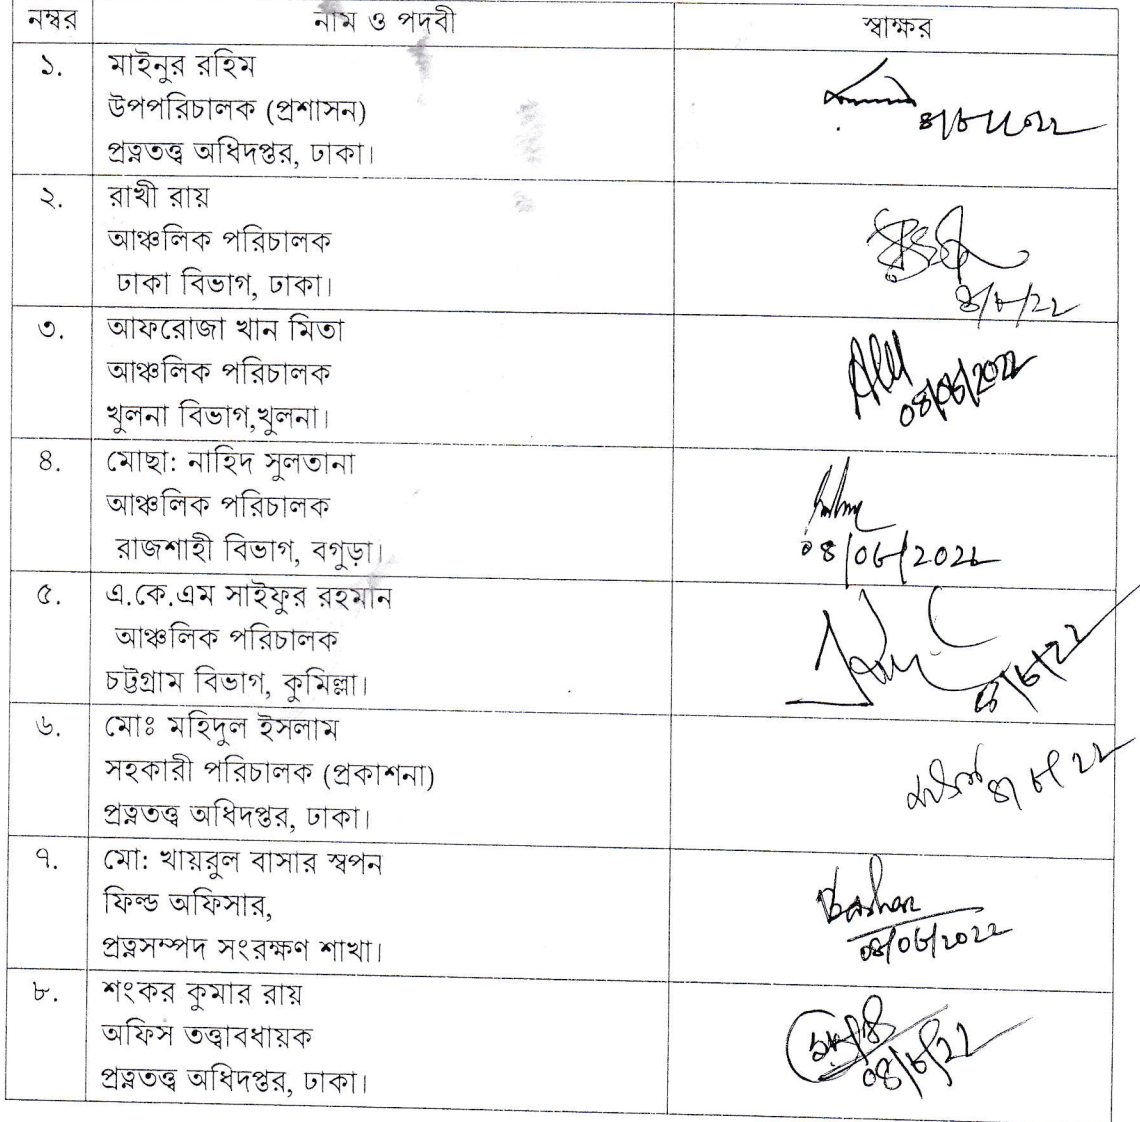 নম্বর নাম ও পদবী স্বাক্ষর
১. মাইনুর রহিম
উপপরিচালক (প্রশাসন)
প্রত্নতত্ত্ব অধিদপ্তর, ঢাকা।
২. রাখী রায়
আঞ্চলিক পরিচালক
ঢাকা বিভাগ, ঢাকা।
৩. আফরোজা খান মিতা
আঞ্চলিক পরিচালক
খুলনা বিভাগ,খুলনা।
08/06/2022
৪. মোছা: নাহিদ সুলতানা
আঞ্চলিক পরিচালক
রাজশাহী বিভাগ, বগুড়া।
08/06/2022
৫. এ.কে.এম সাইফুর রহমান
আঞ্চলিক পরিচালক
চট্টগ্রাম বিভাগ, কুমিল্লা।
৬. মোঃ মহিদুল ইসলাম
সহকারী পরিচালক (প্রকাশনা)
প্রত্নতত্ত্ব অধিদপ্তর, ঢাকা।
৭. মো: খায়রুল বাসার স্বপন
ফিল্ড অফিসার,
Bashar
প্রত্নসম্পদ সংরক্ষণ শাখা।
08/06/2022
৮. শংকর কুমার রায়
অফিস তত্ত্বাবধায়ক
প্রত্নতত্ত্ব অধিদপ্তর, ঢাকা।